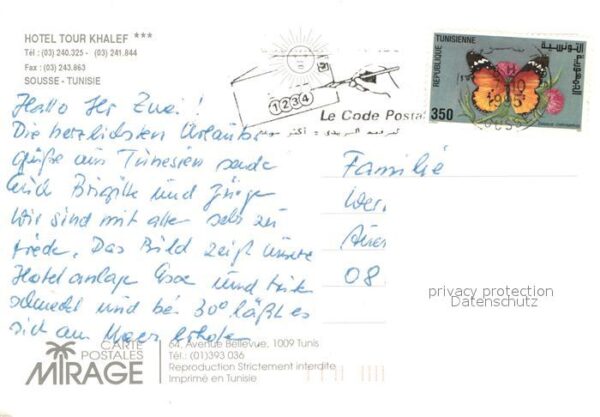 HOTEL TOUR KHALEF ***
Tél : (03) 240.325 - (03) 241.844
Fax : (03) 243.863
SOUSSE - TUNISIE
Hallo Ihr Zwei!
Die herzlichsten Urlaubs
grüße aus Tunesien sende
Euch Brigitte und Jürgen
Wir sind mit allem sehr zu
frieden. Das Bild zeigt unsere
Hotelanlage und
schmeckt und bei 30° läßt es
sich am Meer erholen
1 2 3 4
Le Code Postal
REPUBLIQUE TUNISIENNE
الجمهورية التونسية
350
1995
Familie
Wer
08
privacy protection
Datenschutz
CARTE
POSTALES
MIRAGE
64, Avenue Bellevue, 1009 Tunis
Tél.: (01)393 036
Reproduction Strictement interdite
Imprimé en Tunisie